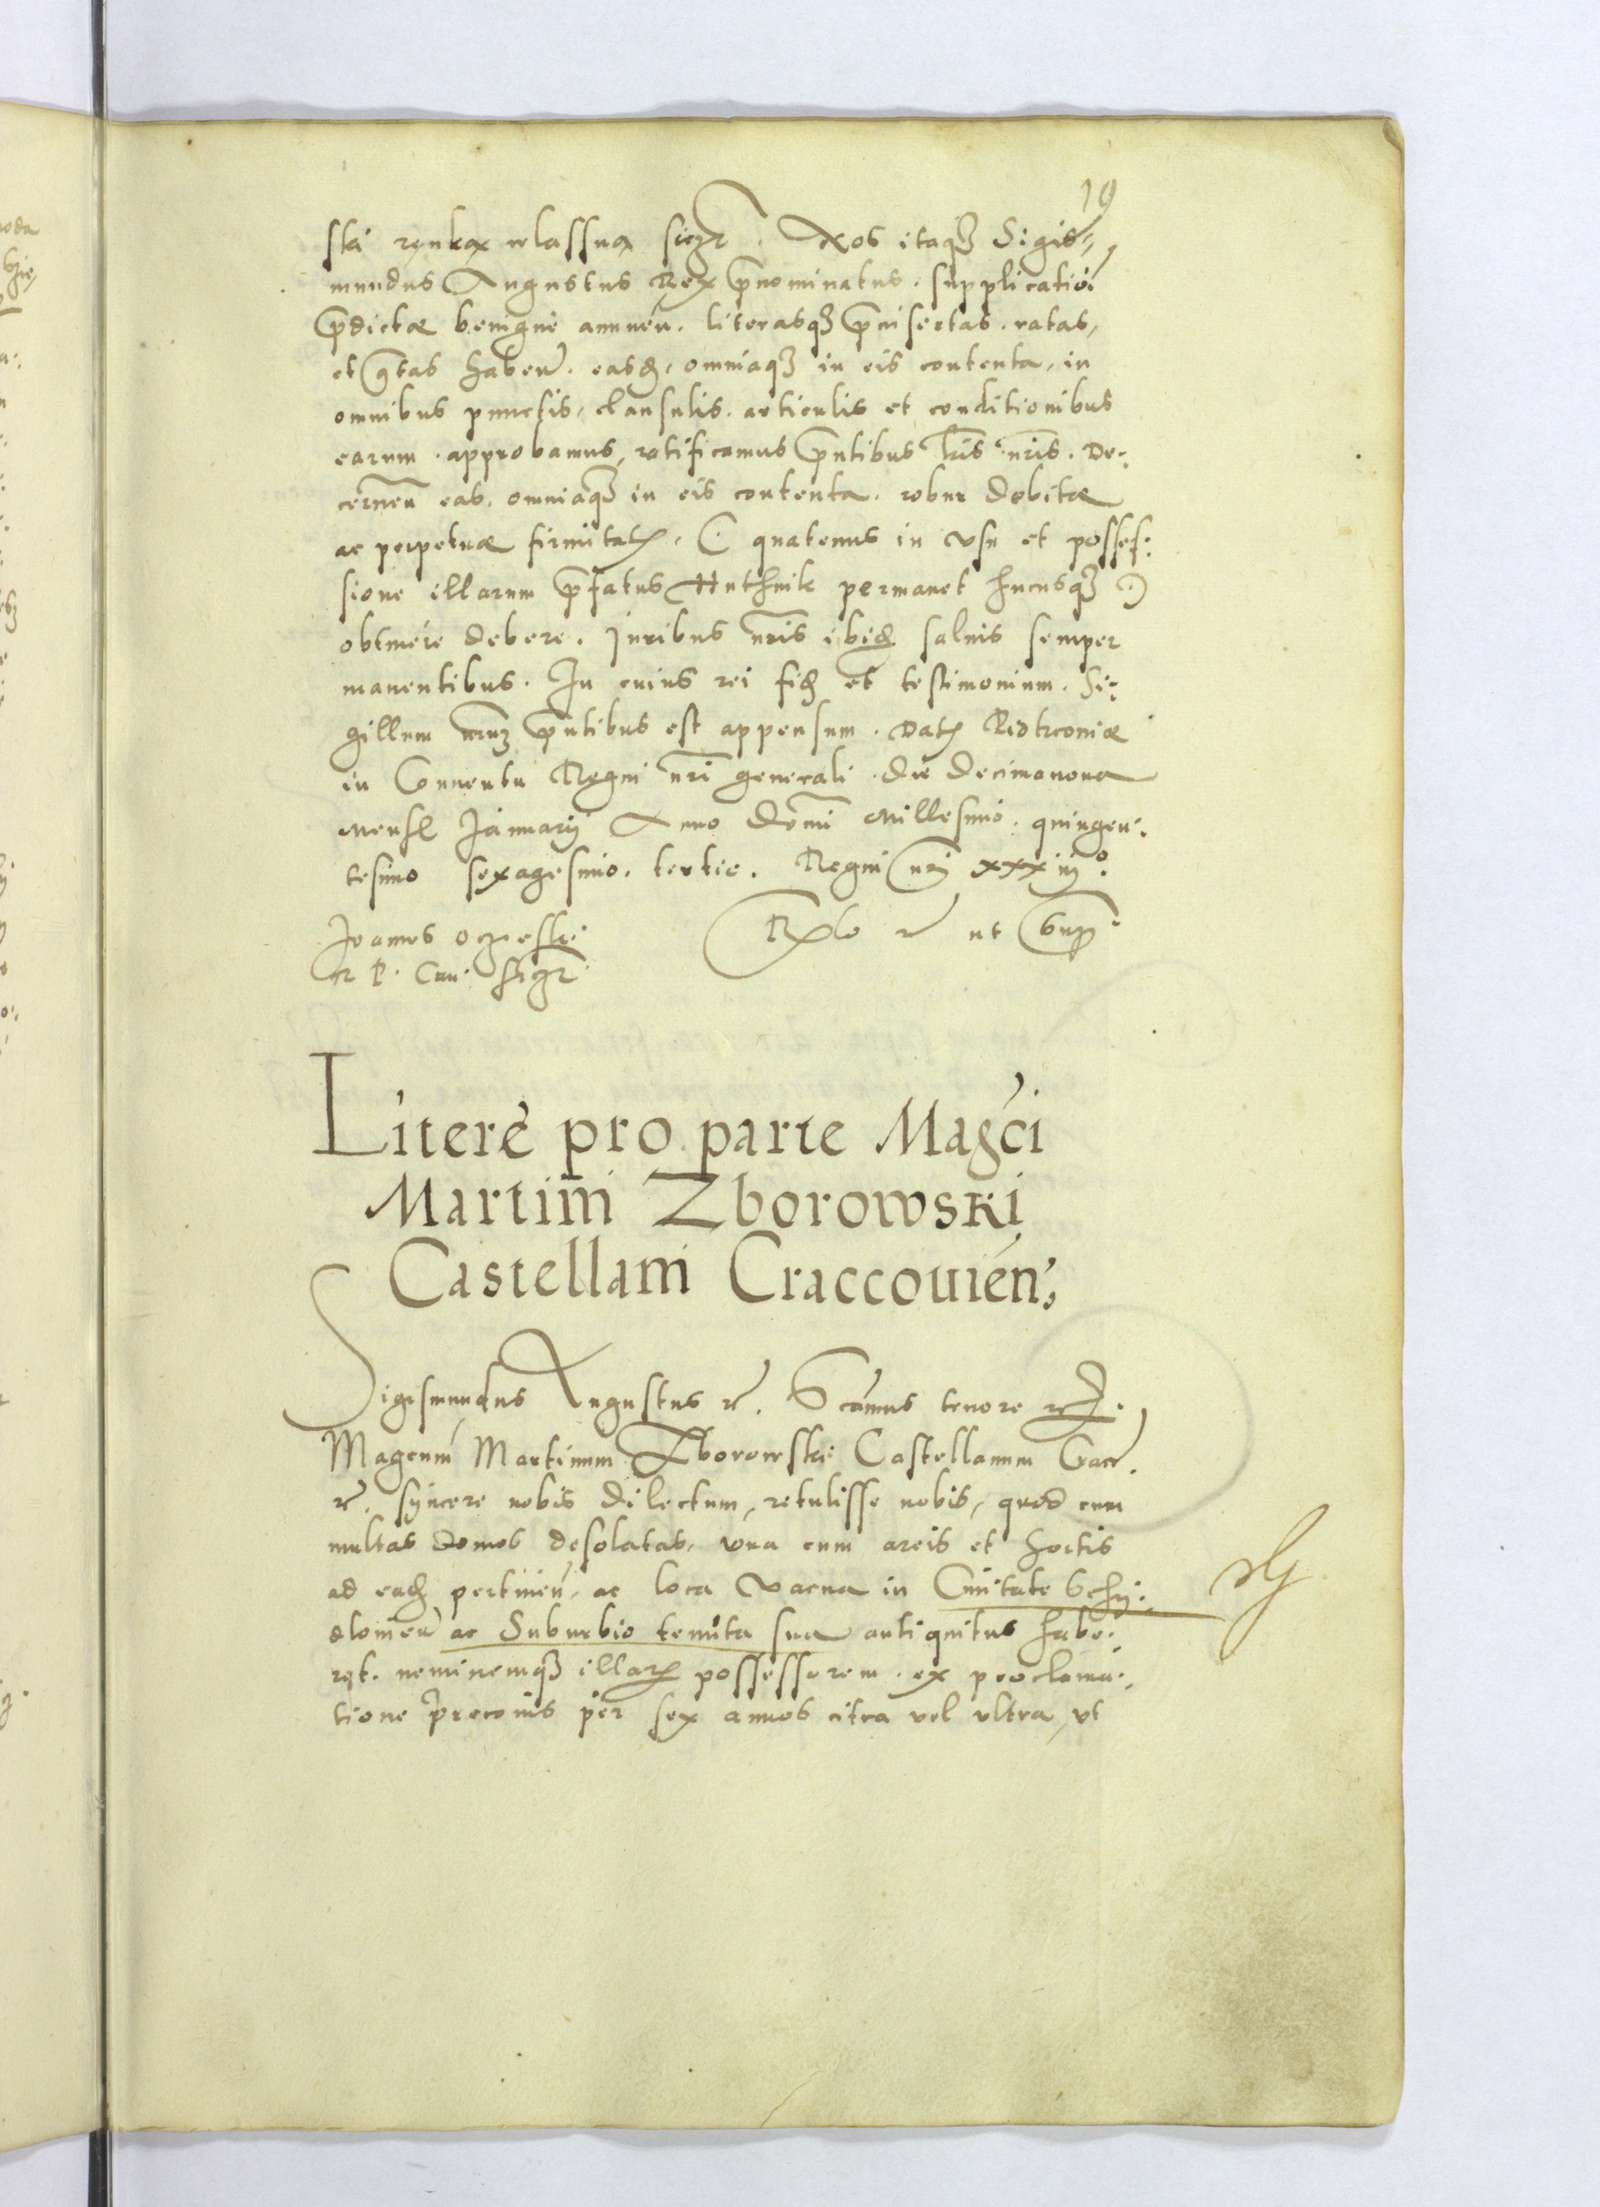 19
ski renkąx wlassnąx sigr. Nos itaq Sigis-
mundus Augustus Rex pnominatus. supplicatioi
pdictæ benigne annuen. literasq pinsertas. ratas,
et gtas haben. easd, omniaq in eis contenta, in
omnibus punctis, clausulis. articulis et conditionibus
earum. approbamus, ratificamus pntibus lris nris. De-
cernen eas, omniaq in eis contenta. robur debitæ
ac perpetuæ firmitat, ( quatenus in usu et posses-
sione illarum pfatus Huthnik permanet hucusq )
obtinere debere. Juribus nris ibid salvis semper
manentibus. In cuius rei fid et testimonium. Si-
gillum nrum pntibus est appensum. Dat Piotrconiæ
in Conventu Regni nri generali. die decimanona
Mens Januarij Anno Domi Millesimo. quingen-
tesimo sexagesimo. tertio. Regni nri xxxiiijo.
Joannes Oczesski
R P. Can. sigr Rlo ut Sup
Litere pro parte Magci
Martini Zborowski
Castellani Craccouien,
Sigismundus Augustus rc. Scamus tenore rc.
Magcum Martinum Zborowski Castellanum Crac.
rc. syncere nobis dilectum, retulisse nobis, quod cum
multas domos desolatas, una cum areis et hortis
ad ead pertinen, ac loca vacua in Civitate Schy-
dlovien ac Suburbio tenuta sua antiquitus habe-
ret. neminemq illar possessorem. ex proclama-
tione preconis per sex annos citra vel ultra, ut